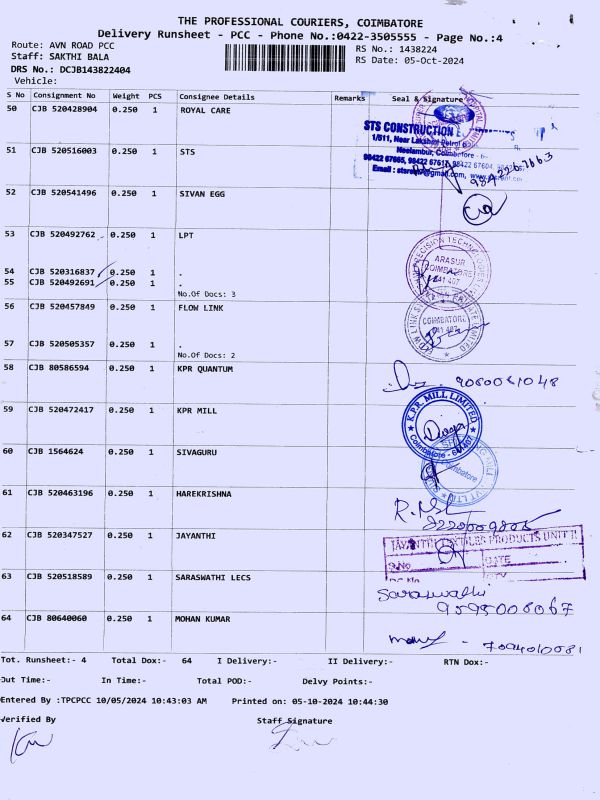 THE PROFESSIONAL COURIERS, COIMBATORE
Delivery Runsheet - PCC - Phone No.:0422-3505555 - Page No.:4
Route: AVN ROAD PCC
RS No.: 1438224
Staff: SAKTHI BALA
RS Date: 05-Oct-2024
DRS No.: DCJB143822404
Vehicle:
S No Consignment No Weight PCS Consignee Details Remarks Seal & Signature
50 CJB 520428904 0.250 1 ROYAL CARE
STS CONSTRUCTION
1/511, Near Lakshmi Petrol
51 CJB 520516003 0.250 1 STS
Neelambur, Coimbatore
98422 67665, 98422 67617, 98422 67604
Email :
9842267663
52 CJB 520541496 0.250 1 SIVAN EGG
53 CJB 520492762 0.250 1 LPT
PRECISION TECHNOLOGIES
ARASUR
COIMBATORE
641 407
54 CJB 520316837 0.250 1 .
55 CJB 520492691 0.250 1 .
No.Of Docs: 3
56 CJB 520457849 0.250 1 FLOW LINK
FLOW LINK
PRIVATE LIMITED
COIMBATORE
641 407
57 CJB 520505357 0.250 1 .
No.Of Docs: 2
58 CJB 80586594 0.250 1 KPR QUANTUM
59 CJB 520472417 0.250 1 KPR MILL
K.P.R. MILL LIMITED
Divya
Coimbatore - 641407
60 CJB 1564624 0.250 1 SIVAGURU
Coimbatore
61 CJB 520463196 0.250 1 HAREKRISHNA
62 CJB 520347527 0.250 1 JAYANTHI
JAYANTHI TEXTILES PRODUCTS UNIT II
S.No DATE
63 CJB 520518589 0.250 1 SARASWATHI LECS
Saraswathi
9595008067
64 CJB 80640060 0.250 1 MOHAN KUMAR
7094010081
Tot. Runsheet:- 4 Total Dox:- 64 I Delivery:- II Delivery:- RTN Dox:-
Out Time:- In Time:- Total POD:- Delvy Points:-
Entered By :TPCPCC 10/05/2024 10:43:03 AM Printed on: 05-10-2024 10:44:30
Verified By Staff Signature